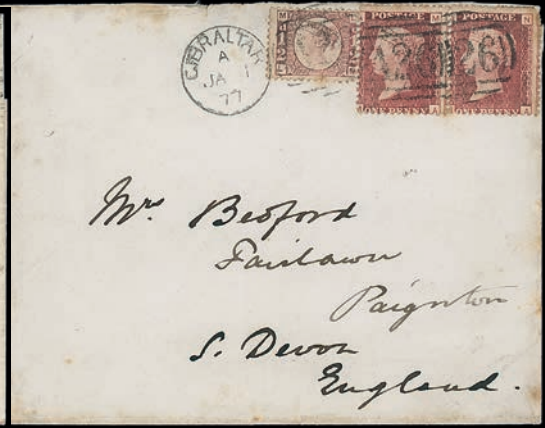 GIBRALTAR
A
JA 1
77
POSTAGE
POSTAGE
A26
26
ONE PENNY
ONE PENNY
Mrs Bedford
Fairlawn
Paignton
S. Devon
England.